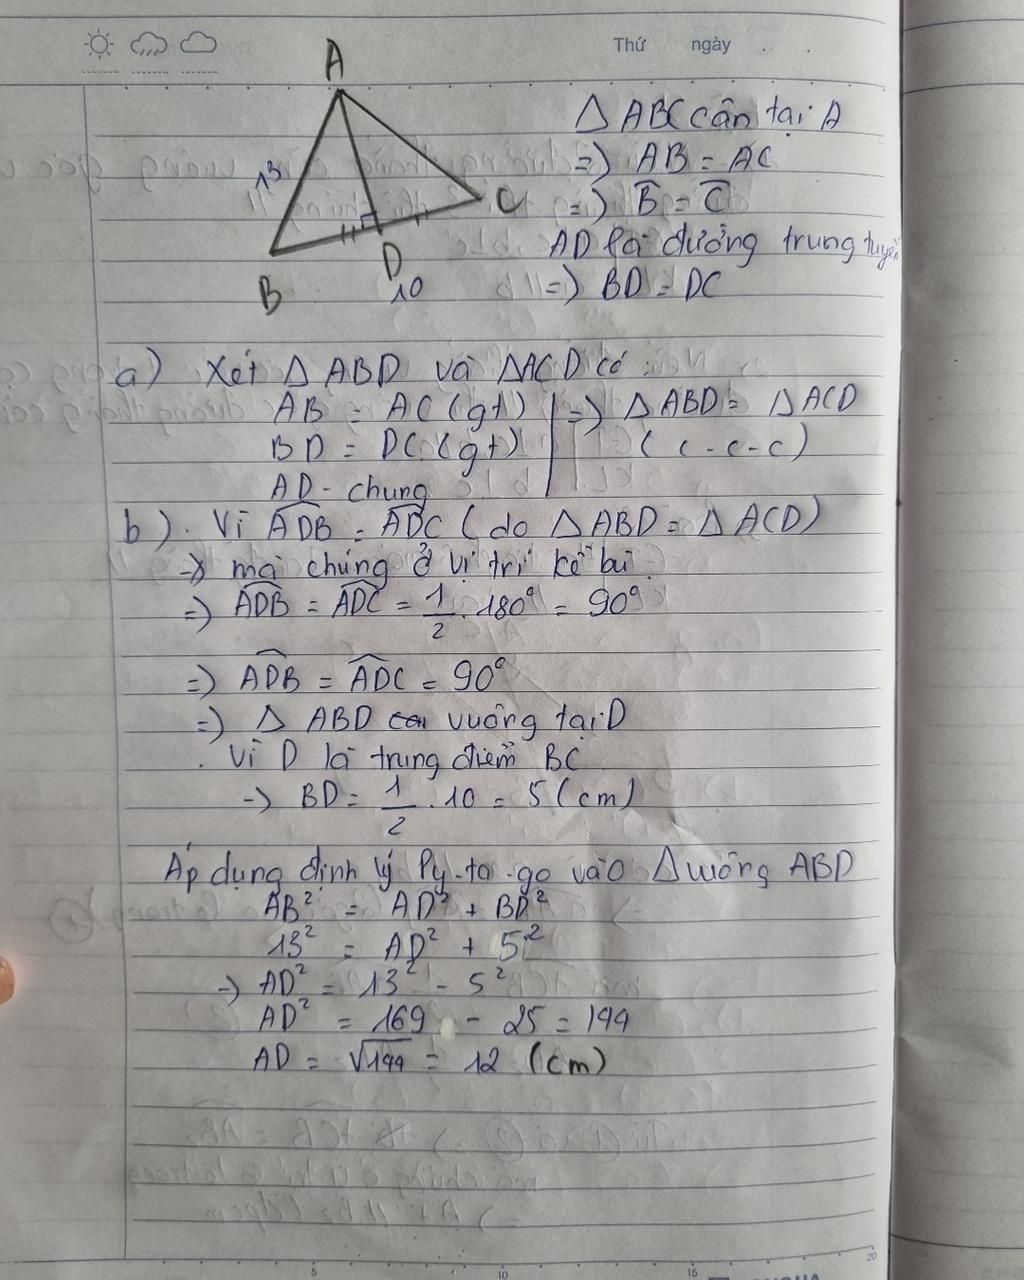 Thứ ngày . .
A
13
B
D
C
10
△ ABC cân tại A
=) AB = AC
=) B = C
AD là đường trung tuyến
=) BD = DC
a) Xét △ ABD và △ACD có :
AB = AC (gt) =) △ ABD = △ ACD
BD = DC (gt) ( c - c - c)
AD - chung
b). Vì ADB = ADC ( do △ ABD = △ ACD)
-> mà chúng ở vị trí kề bù.
=) ADB = ADC = 1/2 . 180° = 90°
=) ADB = ADC = 90°
=) △ ABD vuông tại D
. Vì D là trung điểm BC
-> BD = 1/2 . 10 = 5 (cm)
Áp dụng định lý Py-ta-go vào △ vuông ABD
AB² = AD² + BD²
13² = AD² + 5²
-> AD² = 13² - 5²
AD² = 169 - 25 = 144
AD = √144 = 12 (cm)
5 10 15 20